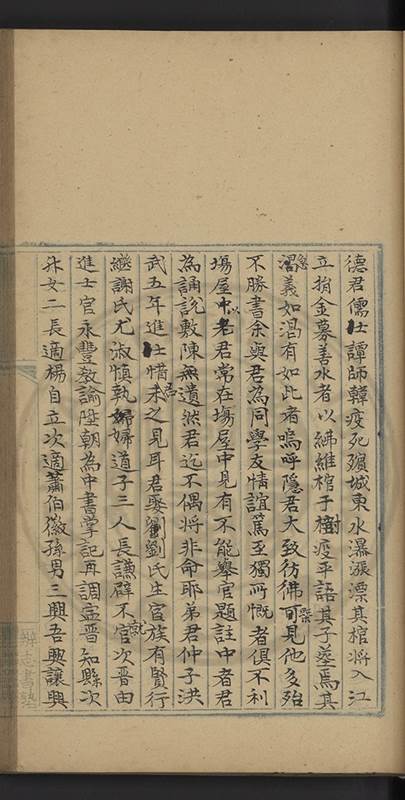 德君儒仕譚師韓疫死殯城東水瀑漲漂其棺將入江
立捐金募善水者以紼維棺于樹疫平語其子塟焉其
急
渴義如渴有如此者嗚呼隱君大致彷彿可見他多殆
槩
不勝書余與君為同學友情誼篤至獨所慨者俱不利
場屋中君常在場屋中見有不能舉官題註中者君
以老
為誦說敷陳無遺然君迄不偶將非命耶弟君仲子洪
武五年進士惜未之見耳君娶劉氏生宦族有賢行
君
繼謝氏尤淑慎執婦道子三人長謙辟不官次晋由
就
進士官永豐教諭陞朝為中書掌記再調寍晋知縣次
升女二長適楊自立次適蕭伯徽孫男三興吾興讓興
辨志書塾